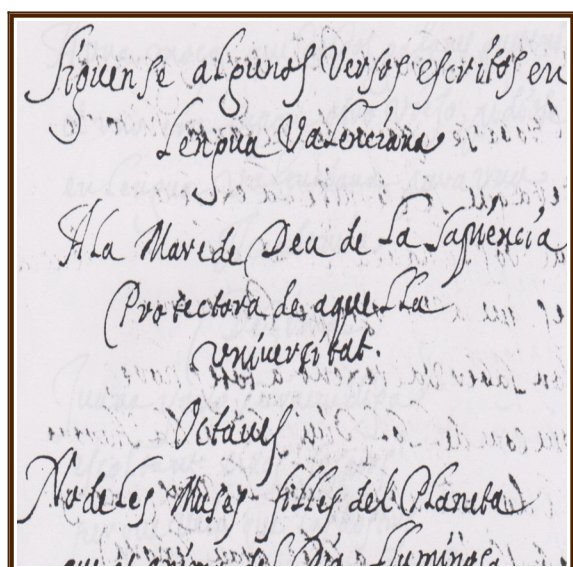 Siguense algunos Versos escritos en
Lengua Valenciana
A La Mare de Deu de La Sapiencia
Protectora de aquella
Vniversitat.
Octaves
No de les Muses filles del Planeta
que el